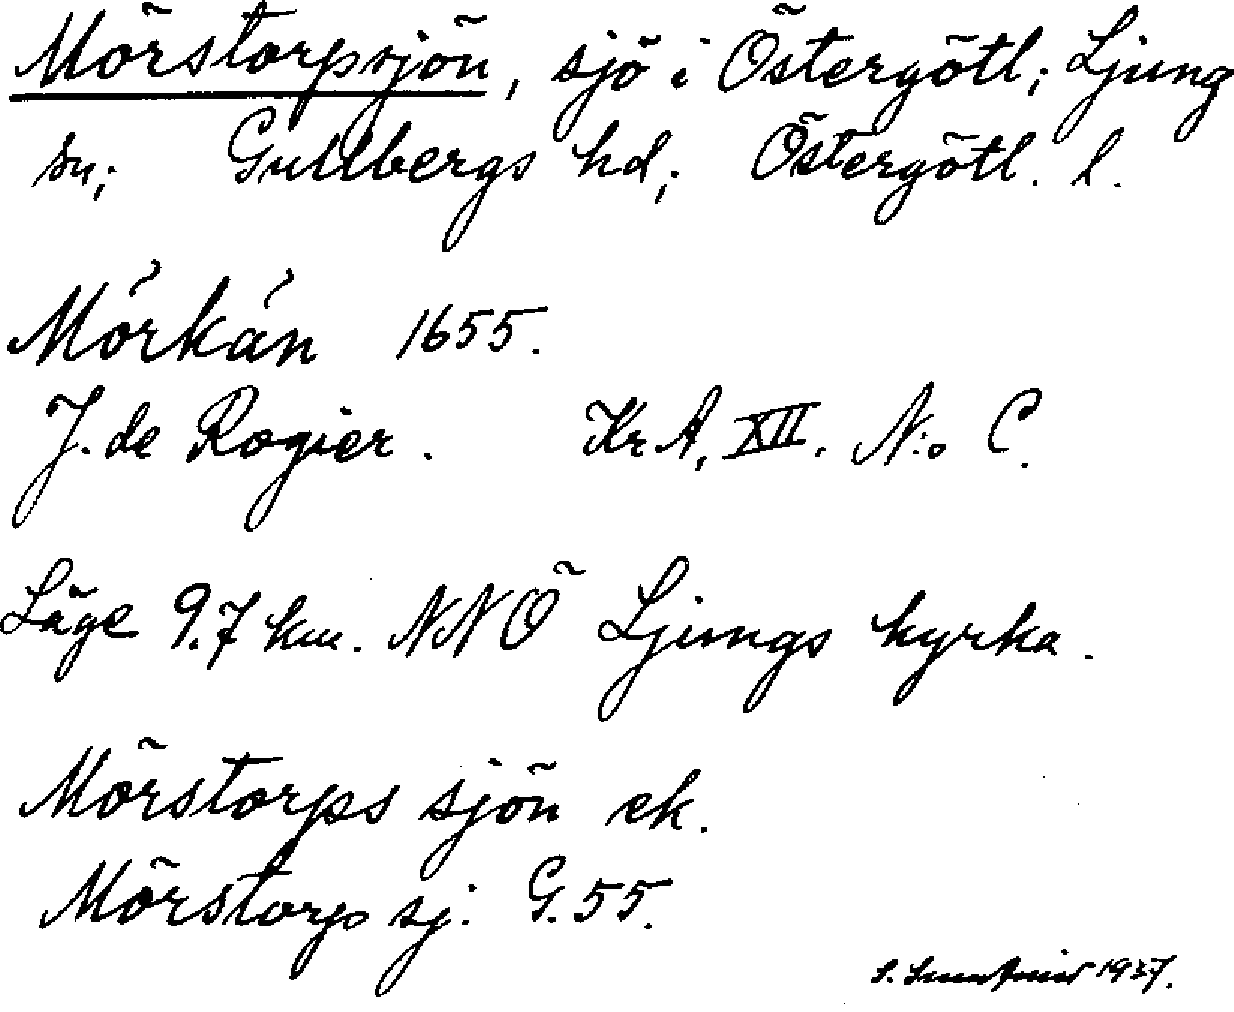 Mörstorpsjön, sjö i Östergötl; Ljung
sn; Gullbergs hd; Östergötl. l.
Mörkån 1655.
J. de Rogier. KrA, XII. N:o C.
Läge 9.7 km. NNÖ Ljungs kyrka.
Mörstorps sjön ek.
Mörstorp sj. G. 55.
S. 1927.